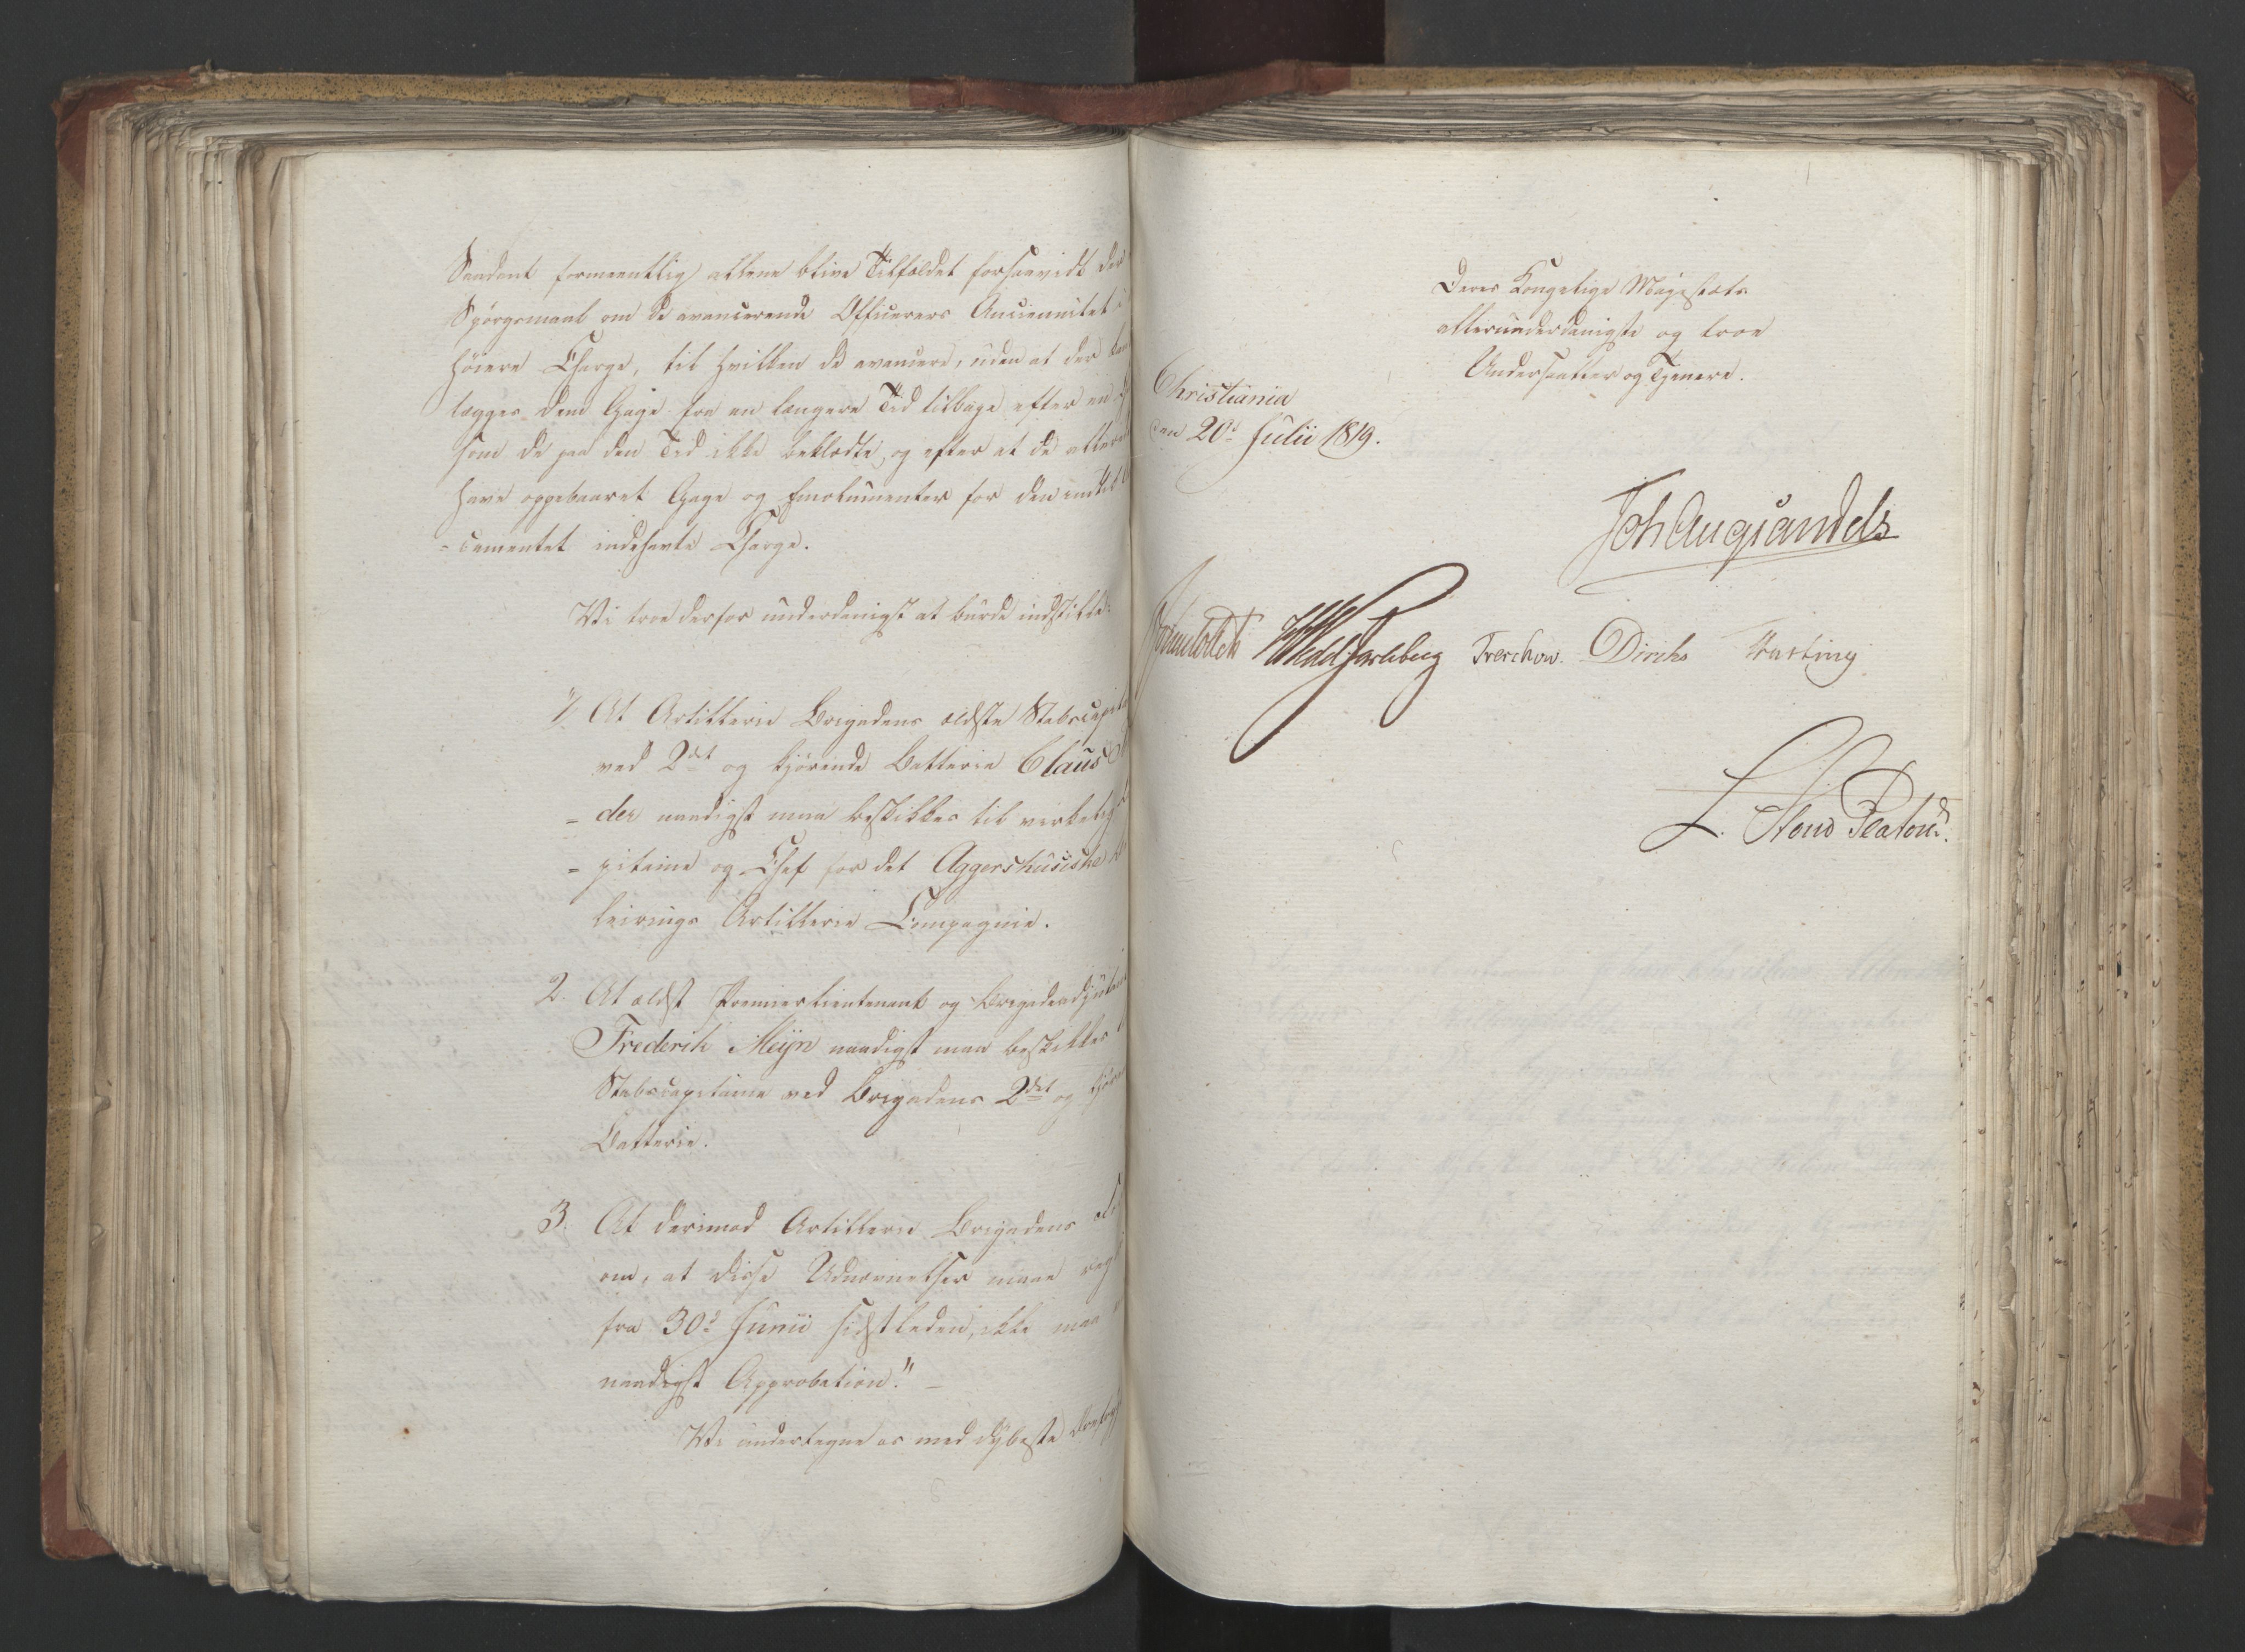 Saadant formeentlig allene blive Tilfældet forsaavidt der
Spörgsmaal om de avancerende Officerers Anciennitet i
höiere Charge, til hvilken de avancere, uden at der
lægges dem Gage fra en længere Tid tilbage efter en
som de paa den Tid ikke beklædte, og efter at de
have oppebaaret Gage og Emolumenter for den indtil
-cementet indehavte Charge.
Vi troe derfor underdanigst at burde indstille:
1, At Artillerie Brigadens ældste Stabscapit
ved 2det og kjörende Batterie Claus
-der naadigst maa beskikkes til virkelig
-pitaine og Chef for det Aggershusiske
leirings Artillerie Compagnie.
2. At ældst Premierlieutenant og Brigadeadjutan
Frederik Meyn naadigst maa beskikkes
Stabscapitaine ved Brigadens 2det og kjören
Batterie.
3. At derimod Artillerie Brigadens
om, at disse Udnævnelser maae reg
fra 30d Junii sidstleden, ikke maa
naadigst Approbation." -
Vi undertegne os med dybeste
Deres Kongelige Majestæts
allerunderdanigste og troe
Undersaatter og Tjenere.
Christiania
den 20d Julii 1819.
Joh Aug Sandels
Sommerfeldt Wedel Jarlsberg Treschow. Diriks Fasting
L. Stoud Platou.